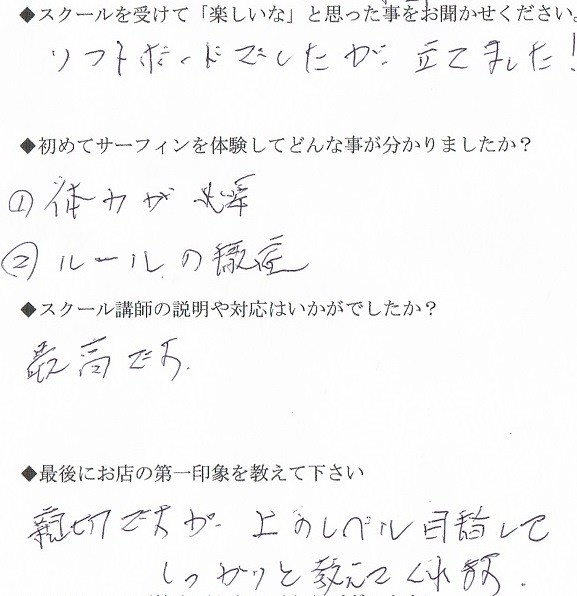 ◆スクールを受けて「楽しいな」と思った事をお聞かせください。
ソフトボードでしたが、立てました!
◆初めてサーフィンを体験してどんな事が分かりましたか?
①体力が必要
②ルールの徹底
◆スクール講師の説明や対応はいかがでしたか?
最高です。
◆最後にお店の第一印象を教えて下さい
親切ですが、上のレベル目指して
しっかりと教えてくれます。